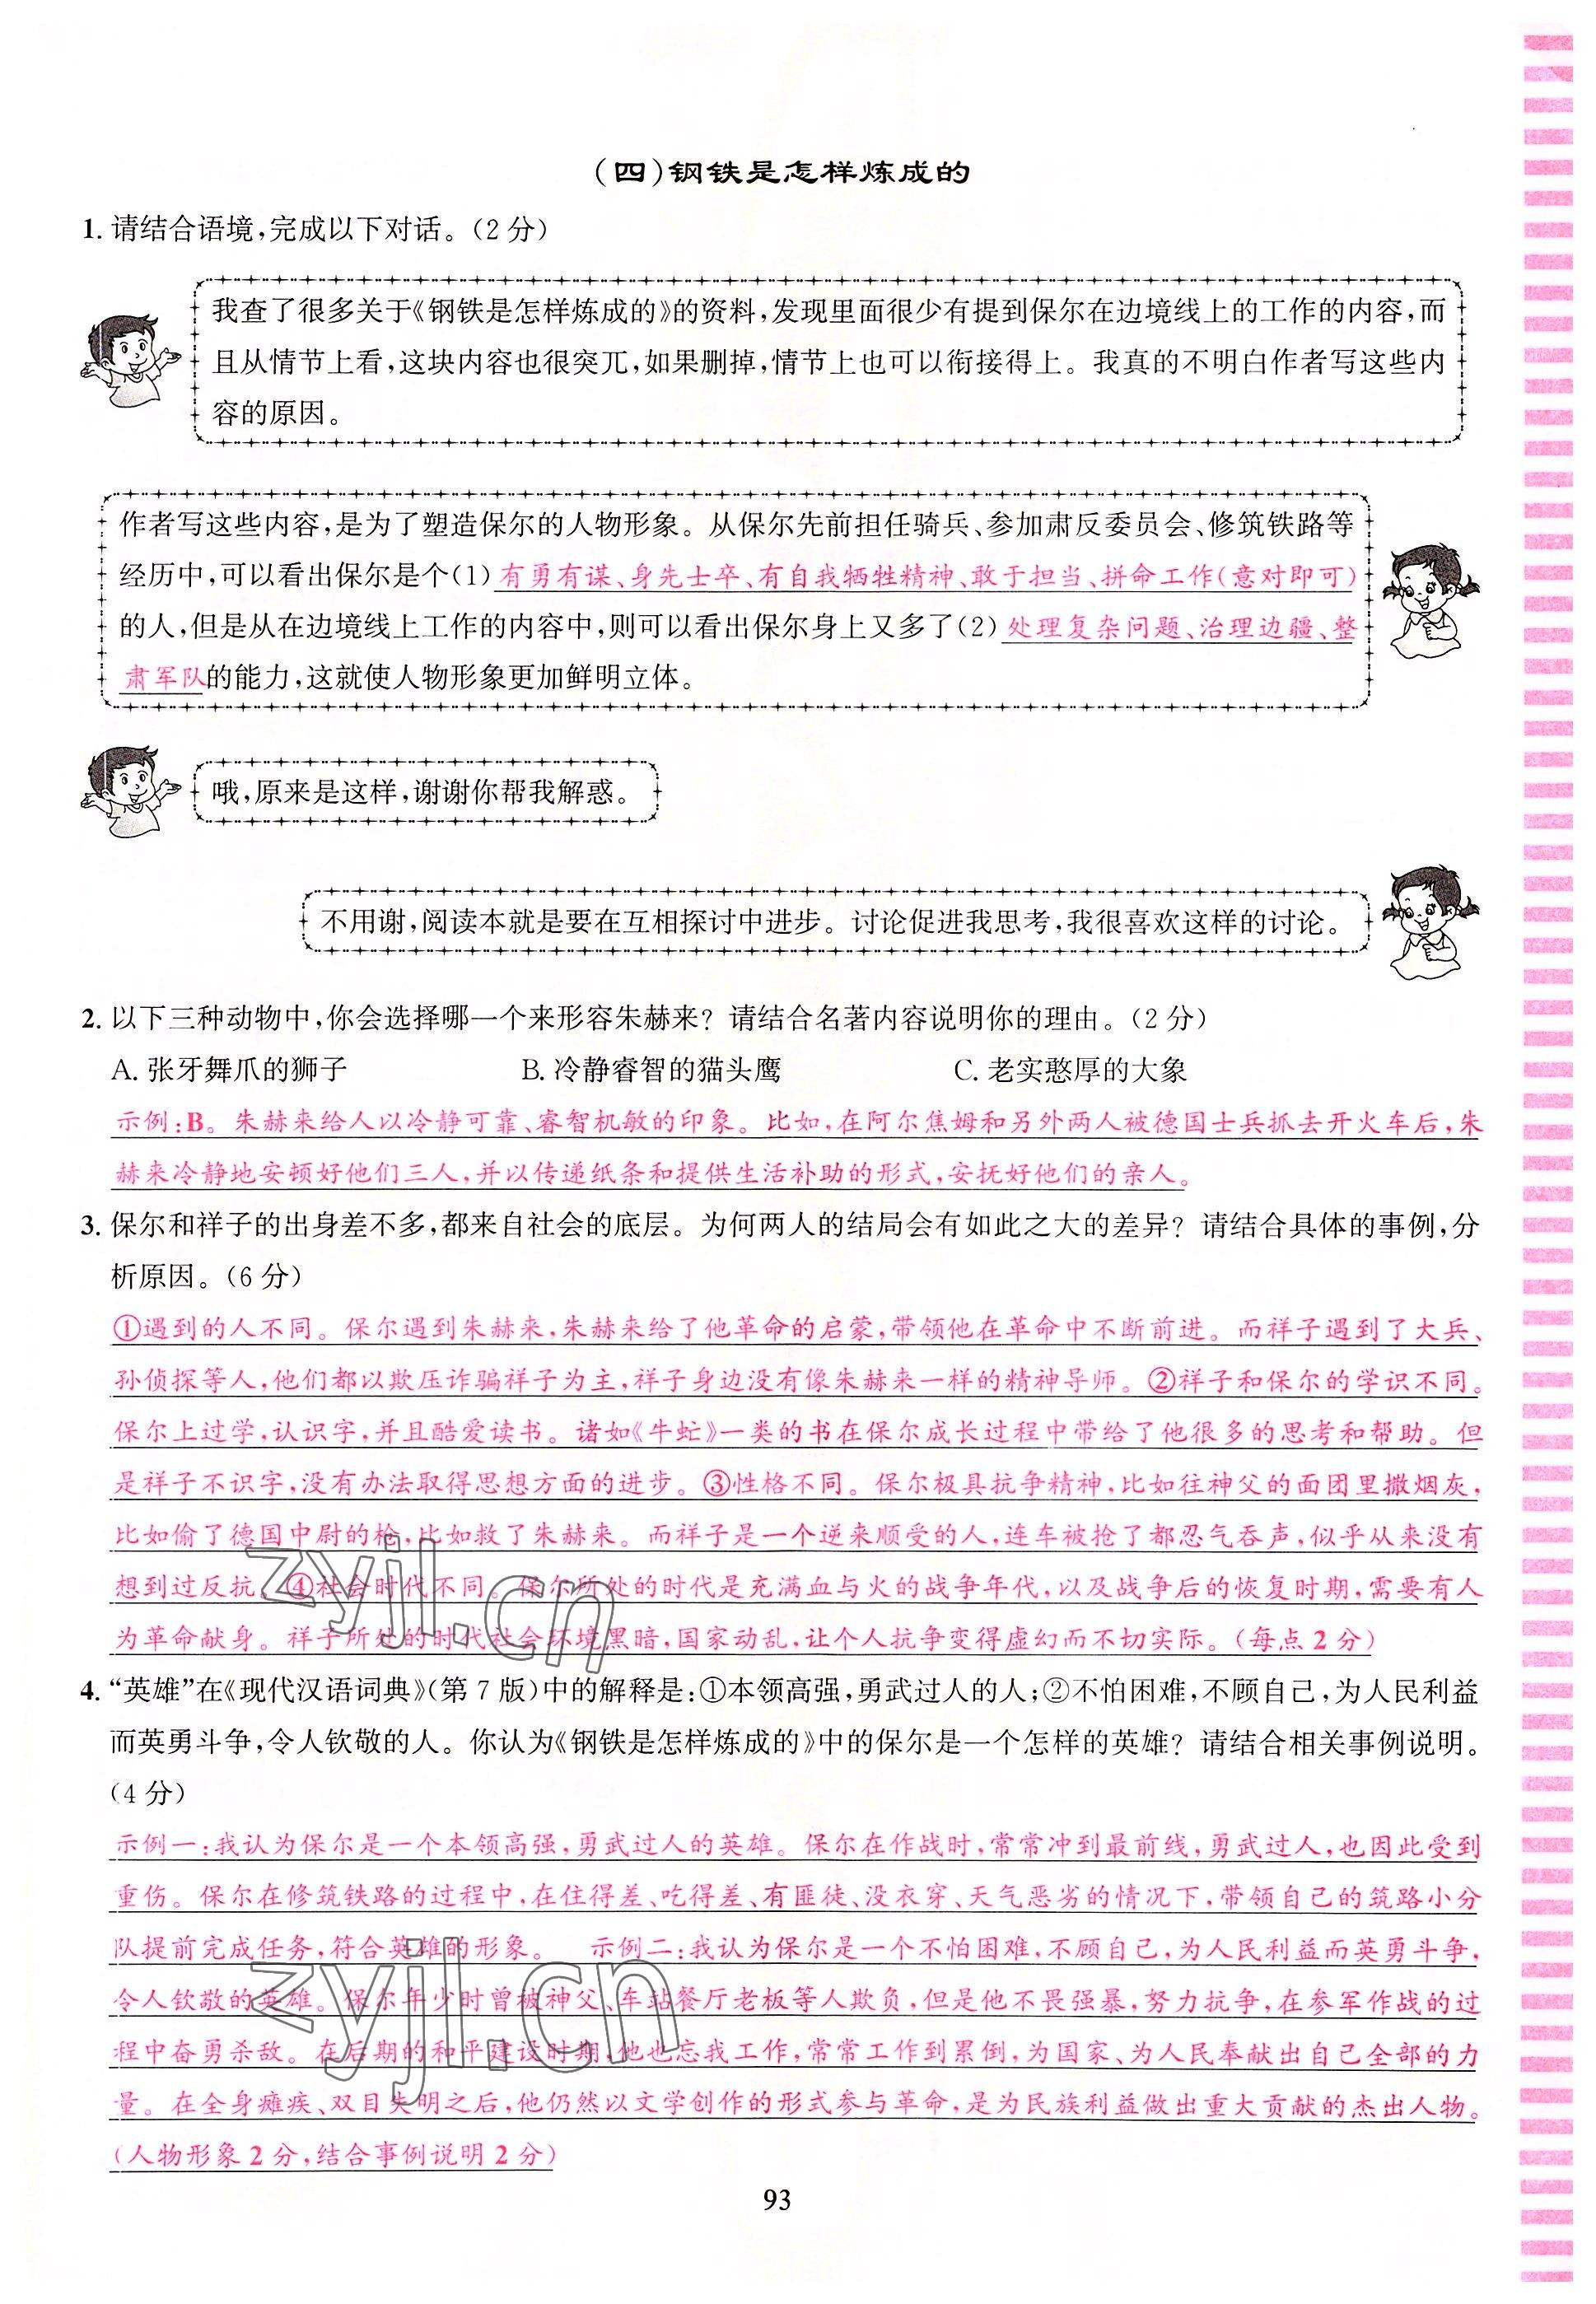 (四)钢铁是怎样炼成的
1. 请结合语境,完成以下对话。(2 分)
我查了很多关于《钢铁是怎样炼成的》的资料,发现里面很少有提到保尔在边境线上的工作的内容,而
且从情节上看,这块内容也很突兀,如果删掉,情节上也可以衔接得上。我真的不明白作者写这些内
容的原因。
作者写这些内容,是为了塑造保尔的人物形象。从保尔先前担任骑兵、参加肃反委员会、修筑铁路等
经历中,可以看出保尔是个(1)有勇有谋、身先士卒、有自我牺牲精神、敢于担当、拼命工作(意对即可)
的人,但是从在边境线上工作的内容中,则可以看出保尔身上又多了(2)处理复杂问题、治理边疆、整
肃军队的能力,这就使人物形象更加鲜明立体。
哦,原来是这样,谢谢你帮我解惑。
不用谢,阅读本就是要在互相探讨中进步。讨论促进我思考,我很喜欢这样的讨论。
2. 以下三种动物中,你会选择哪一个来形容朱赫来？请结合名著内容说明你的理由。(2 分)
A. 张牙舞爪的狮子 B. 冷静睿智的猫头鹰 C. 老实憨厚的大象
示例:B。朱赫来给人以冷静可靠、睿智机敏的印象。比如,在阿尔焦姆和另外两人被德国士兵抓去开火车后,朱
赫来冷静地安顿好他们三人,并以传递纸条和提供生活补助的形式,安抚好他们的亲人。
3. 保尔和祥子的出身差不多,都来自社会的底层。为何两人的结局会有如此之大的差异？请结合具体的事例,分
析原因。(6 分)
①遇到的人不同。保尔遇到朱赫来,朱赫来给了他革命的启蒙,带领他在革命中不断前进。而祥子遇到了大兵、
孙侦探等人,他们都以欺压诈骗祥子为主,祥子身边没有像朱赫来一样的精神导师。②祥子和保尔的学识不同。
保尔上过学,认识字,并且酷爱读书。诸如《牛虻》一类的书在保尔成长过程中带给了他很多的思考和帮助。但
是祥子不识字,没有办法取得思想方面的进步。③性格不同。保尔极具抗争精神,比如往神父的面团里撒烟灰,
比如偷了德国中尉的枪,比如救了朱赫来。而祥子是一个逆来顺受的人,连车被抢了都忍气吞声,似乎从来没有
想到过反抗。④社会时代不同。保尔所处的时代是充满血与火的战争年代,以及战争后的恢复时期,需要有人
为革命献身。祥子所处的时代社会环境黑暗,国家动乱,让个人抗争变得虚幻而不切实际。(每点 2 分)
4. “英雄”在《现代汉语词典》(第 7 版)中的解释是:①本领高强,勇武过人的人;②不怕困难,不顾自己,为人民利益
而英勇斗争,令人钦敬的人。你认为《钢铁是怎样炼成的》中的保尔是一个怎样的英雄？请结合相关事例说明。
(4 分)
示例一:我认为保尔是一个本领高强,勇武过人的英雄。保尔在作战时,常常冲到最前线,勇武过人,也因此受到
重伤。保尔在修筑铁路的过程中,在住得差、吃得差、有匪徒、没衣穿、天气恶劣的情况下,带领自己的筑路小分
队提前完成任务,符合英雄的形象。 示例二:我认为保尔是一个不怕困难,不顾自己,为人民利益而英勇斗争,
令人钦敬的英雄。保尔年少时曾被神父、车站餐厅老板等人欺负,但是他不畏强暴,努力抗争,在参军作战的过
程中奋勇杀敌。在后期的和平建设时期,他也忘我工作,常常工作到累倒,为国家、为人民奉献出自己全部的力
量。在全身瘫痪、双目失明之后,他仍然以文学创作的形式参与革命,是为民族利益做出重大贡献的杰出人物。
(人物形象 2 分,结合事例说明 2 分)
93
zyjl.cn
zyjl.cn